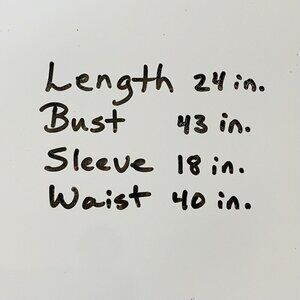 Length 24 in.
Bust 43 in.
Sleeve 18 in.
Waist 40 in.